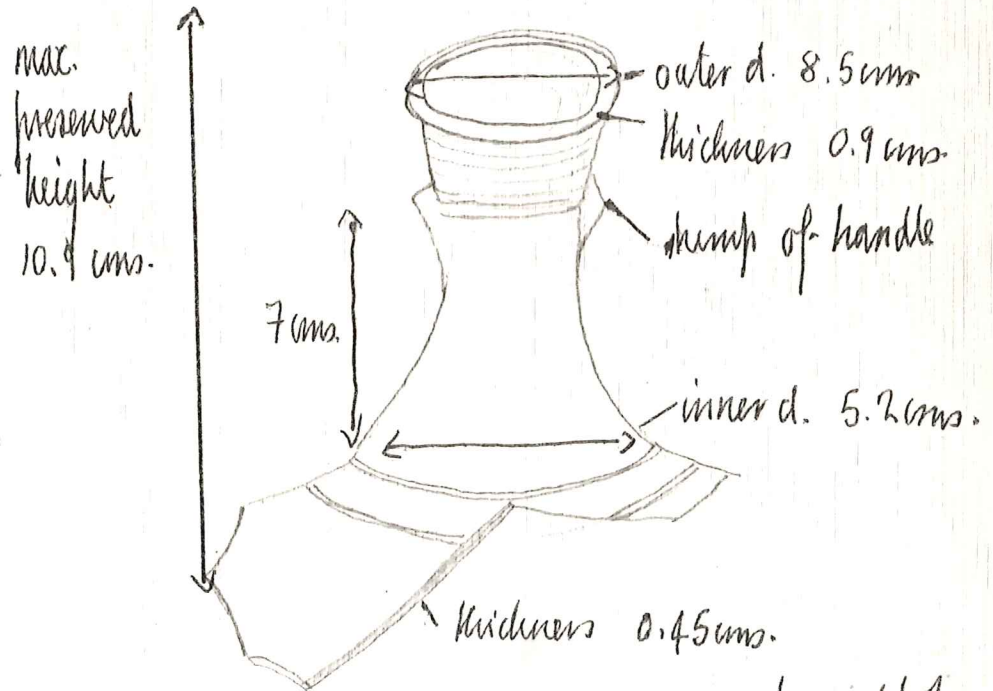 max.
preserved
height
10.9 cms.
outer d. 8.5 cms
thickness 0.9 cms.
stump of handle
7 cms.
inner d. 5.2 cms.
thickness 0.45 cms.